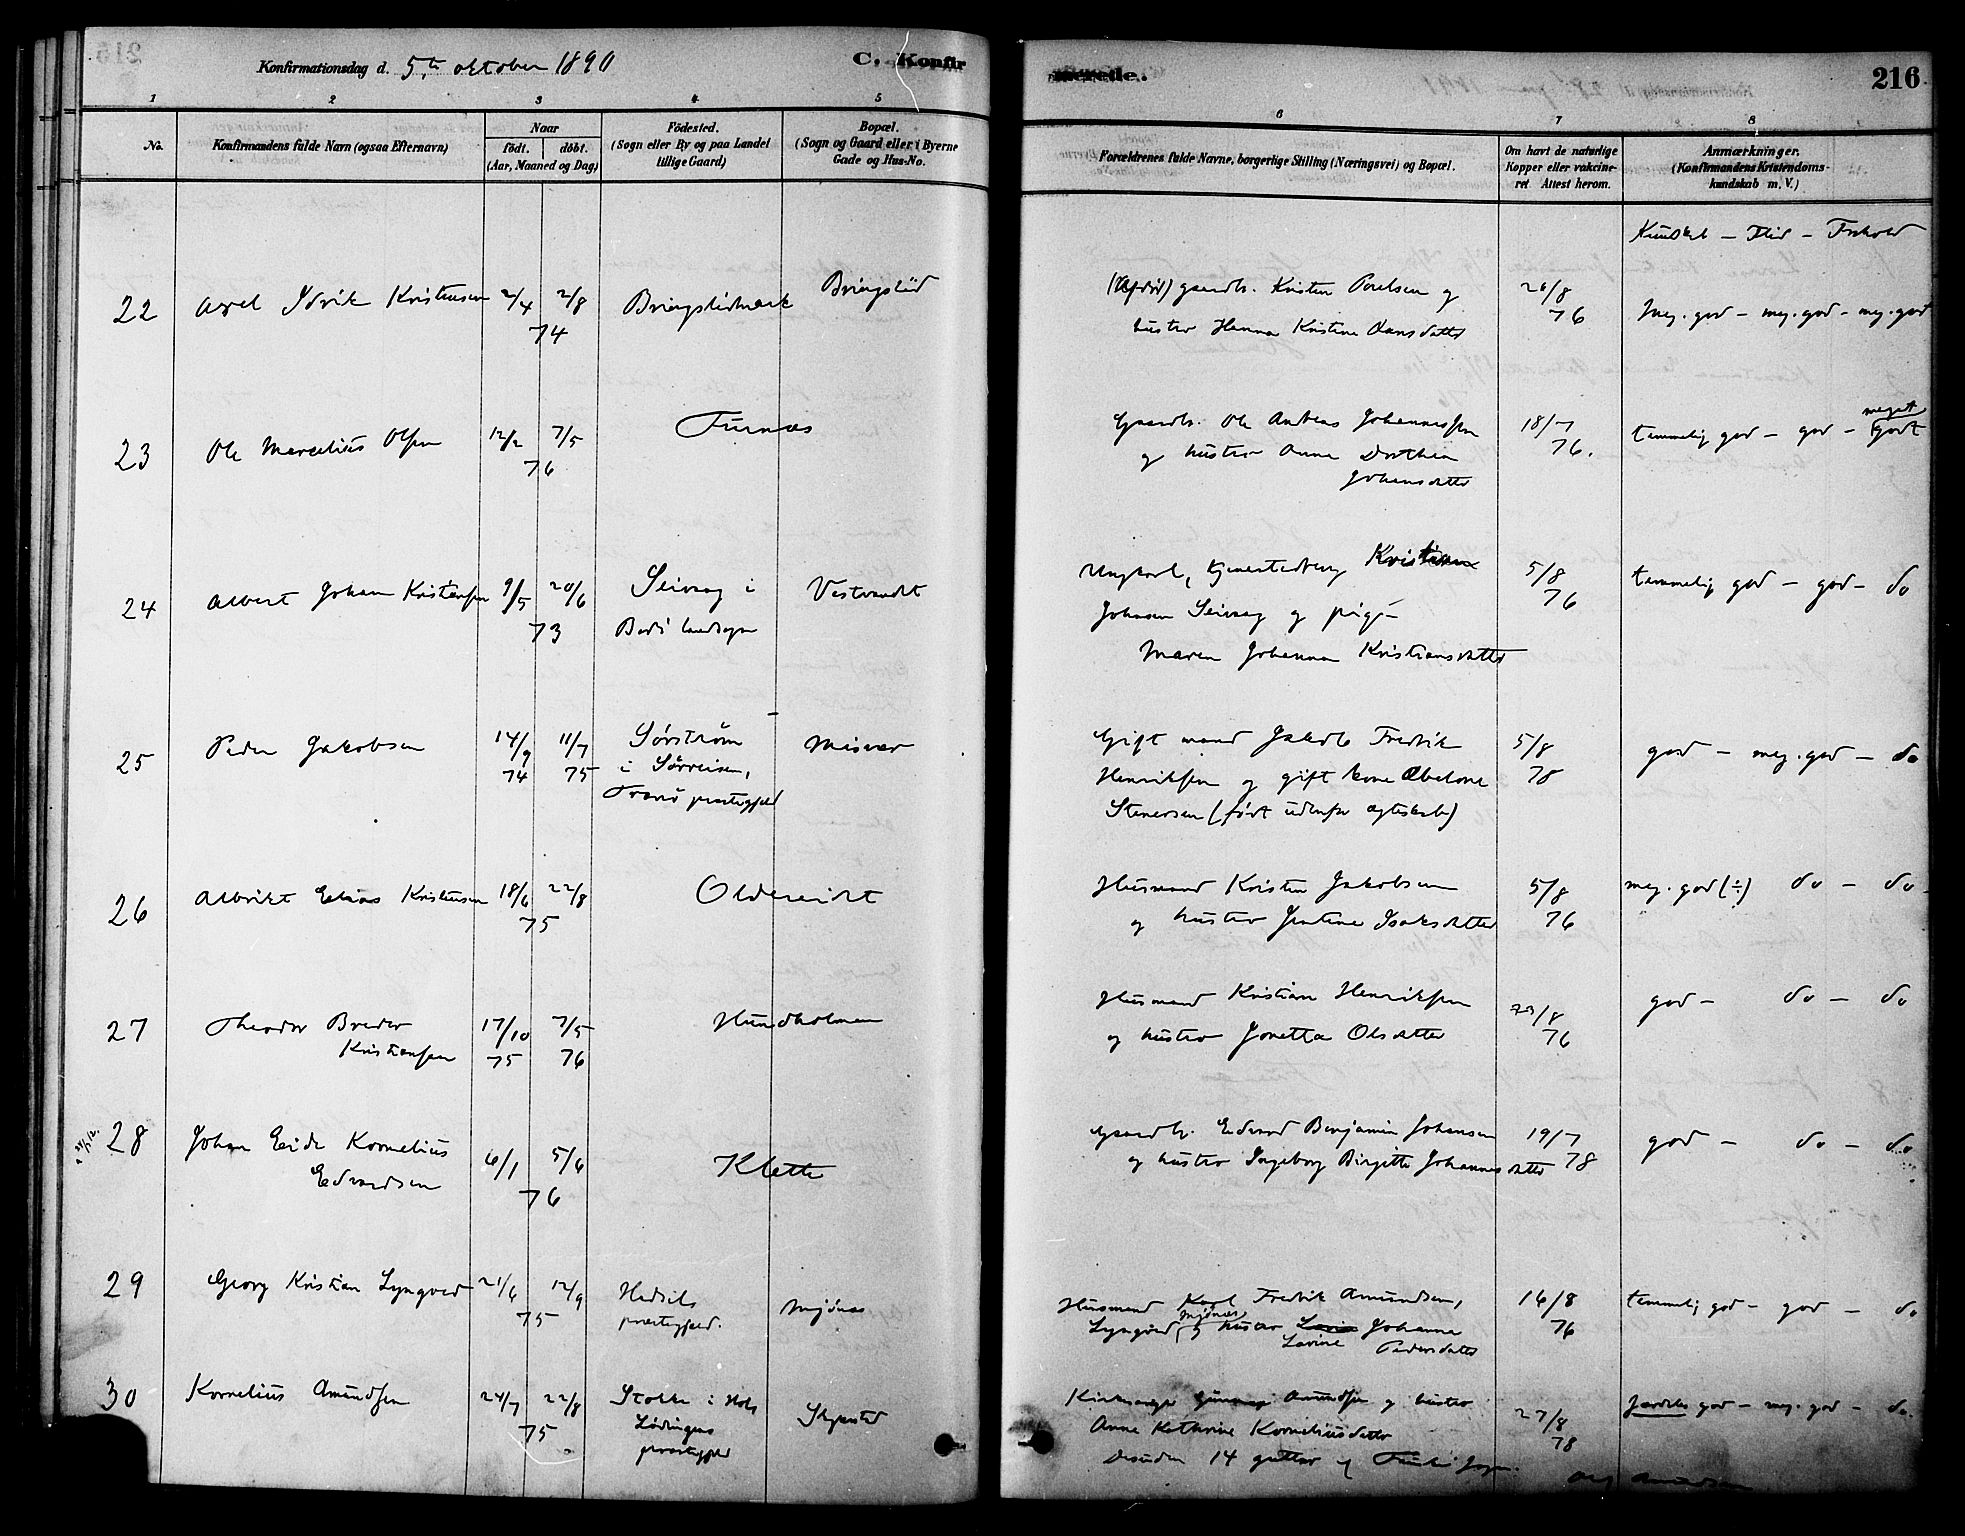 Konfirmationsdag d. 5te oktober 1890
C. Konfirmerede.
216
1 2 3 4 5 6 7 8
No.
Konfirmandens fulde Navn (ogsaa Efternavn)
Naar
födt. döbt.
(Aar, Maaned og Dag)
Födested.
(Sogn eller By og paa Landet
tillige Gaard)
Bopæl.
(Sogn og Gaard eller i Byerne
Gade og Hus-No.
Forældrenes fulde Navne, borgerlige Stilling (Næringsvei) og Bopæl.
Om havt de naturlige
Kopper eller vakcine-
ret Attest herom.
Anmærkninger.
(Konfirmandens Kristendoms-
kundskab m. V.)
Kundsk. — Flid — Forhold
22 Axel Idrik Kristensen 2/4 2/8 74 Bringslidmark Bringslid
gaardb. Kristen Poulsen og
hustro Hanna Kristine Hansdatter
26/8 76
Meg. god — meg. god — meg. god
23 Ole Marcelius Olsen 12/2 7/5 76 Furnes
Gaardb. Ole Andreas Johannessen
og hustro Anne Dorthea
Johansdatter
18/7 76.
temmelig god — god — meget godt
24 Albert Johan Kristensen 9/5 20/6 73 Seivaag i
Bodö landsogn
Vestvandet
Ungkarl, tjenestedreng Kristian
Johnsen Seivaag og pige
Maren Johanna Kristiansdatter
5/8 76
temmelig god — god — do
25 Peder Jakobsen 14/9 74 11/7 75
Sörström
i Sörreisen,
Tranö præstegjeld
Misvær
Gift mand Jakob Fredrik
Henriksen og gift kone Abelone
Stenersen (født udenfor ægteskab)
5/8 78
god — meg. god — do
26 Albrikt Elias Kristensen 18/6 22/8 75 Oldereidet
Husmand Kristen Jakobsen
og hustro Jentine Isaksdatter
5/8 76
meg. god (÷) do — do
27 Theodor Breder
Kristiansen
17/10 75 7/5 76
Hundholmen
Husmand Kristian Henriksen
og hustro Jonetta Olsdatter
29/8 76
god — do — do
28 Johan Eide Kornelius
Edvardsen
6/1 5/6 76
Klette
Gaardb. Edvard Benjamin Johansen
og hustro Ingeborg Birgitte Johannesdatter
19/7 78
god — do — do
29 Georg Kristian Lyngved 21/6 12/9 75
Hadsels
præstegjeld.
Mjönes
Husmand Karl Fredrik Amundsen,
Lyngved, Mjönes og hustro Johanna
Lovise Pedersdatter
16/8 76
temmelig god — god — do
30 Kornelius Amundsen 24/7 22/8 75
Stokke i Hols
Lödingens
præstegjeld
Skjerstad
Kirkesanger Amundsen og hustro
Anne Kathrine Korneliusdatter
27/8 78
særdeles god — meg. god — do.
Desuden 14 gutter af
Amundsen